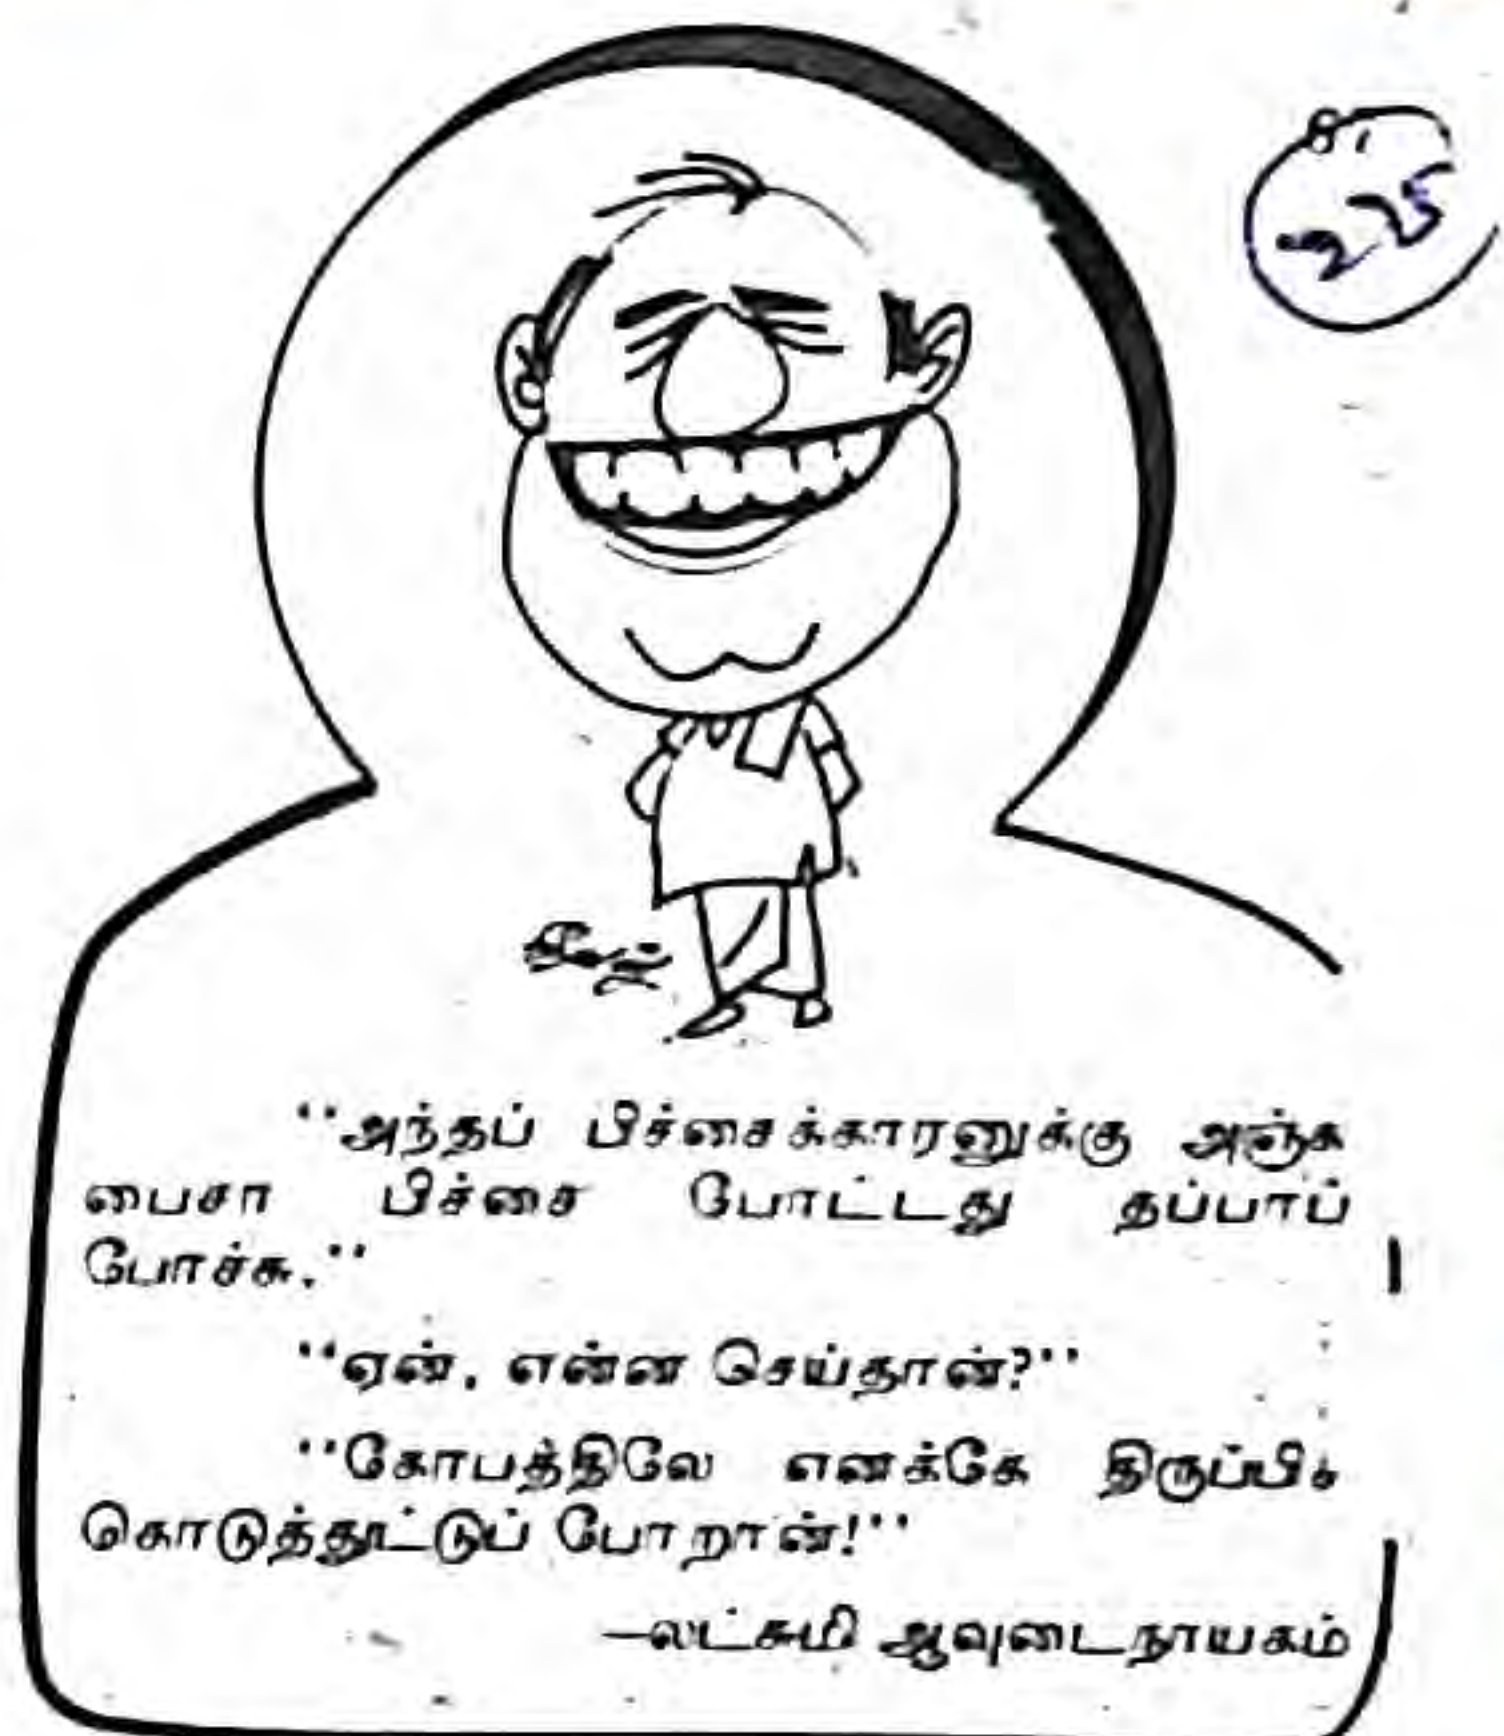 225
"அந்தப் பிச்சைக்காரனுக்கு அஞ்சு
பைசா பிச்சை போட்டது தப்பாப்
போச்சு."
"ஏன், என்ன செய்தான்?"
"கோபத்திலே எனக்கே திருப்பிக்
கொடுத்துட்டுப் போறான்!"
—லட்சுமி ஆவுடைநாயகம்